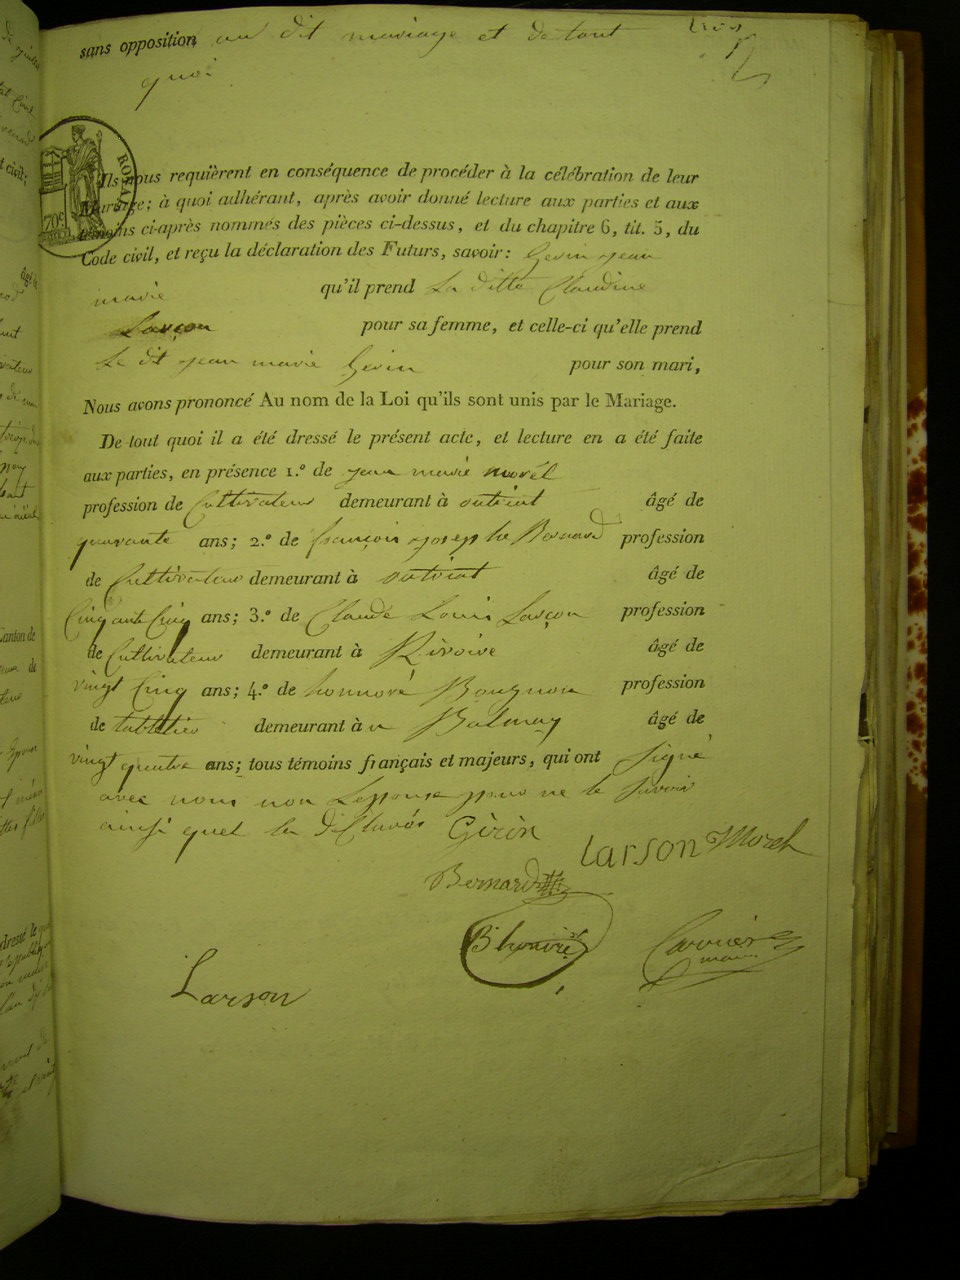 sans opposition au dit mariage et de tout
quoi
ROYAL
70c
Ils nous requièrent en conséquence de procéder à la célébration de leur
Mariage; à quoi adhérant, après avoir donné lecture aux parties et aux
témoins ci-après nommés des pièces ci-dessus, et du chapitre 6, tit. 5, du
Code civil, et reçu la déclaration des Futurs, savoir: Gerin jean
marie qu'il prend La ditte Claudine
Larçon pour sa femme, et celle-ci qu'elle prend
Le dit jean marie Gerin pour son mari,
Nous avons prononcé Au nom de la Loi qu'ils sont unis par le Mariage.
De tout quoi il a été dressé le présent acte, et lecture en a été faite
aux parties, en présence 1.º de jean marie morél
profession de Cultivateur demeurant à outriat âgé de
quarante ans; 2.º de françois joseph Bernard profession
de Cultivateur demeurant à outriat âgé de
Cinquante Cinq ans; 3.º de Claude Louis Larçon profession
de Cultivateur demeurant à Rivoire âgé de
vingt Cinq ans; 4.º de honnoré profession
de demeurant à Balmay âgé de
vingt quatre ans; tous témoins français et majeurs, qui ont signé
avec nous non Lepouse pour ne le savoir
ainsi quel la déClaré Gèrin
Larson Morel
Bernard
Larson